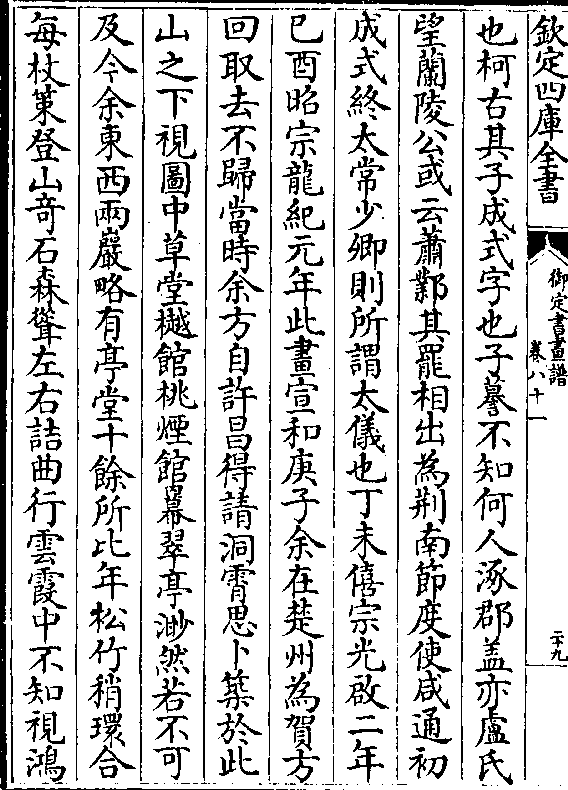 欽定四庫全書
御定書畫譜
卷八十一
二十九
也柯古其子成式字也子謩不知何人涿郡盖亦盧氏
望蘭陵公或云蕭鄴其罷相出為荆南節度使咸通初
成式終太常少卿則所謂太儀也丁未僖宗光啟二年
巳酉昭宗龍紀元年此畫宣和庚子余在楚州為賀方
回取去不歸當時余方自許昌得請洞霄思卜築於此
山之下視圖中草堂樾館桃煙館冪翠亭渺然若不可
及今余東西兩巖略有亭堂十餘所比年松竹稍環合
每杖策登山竒石森聳左右詰曲行雲霞中不知視鴻